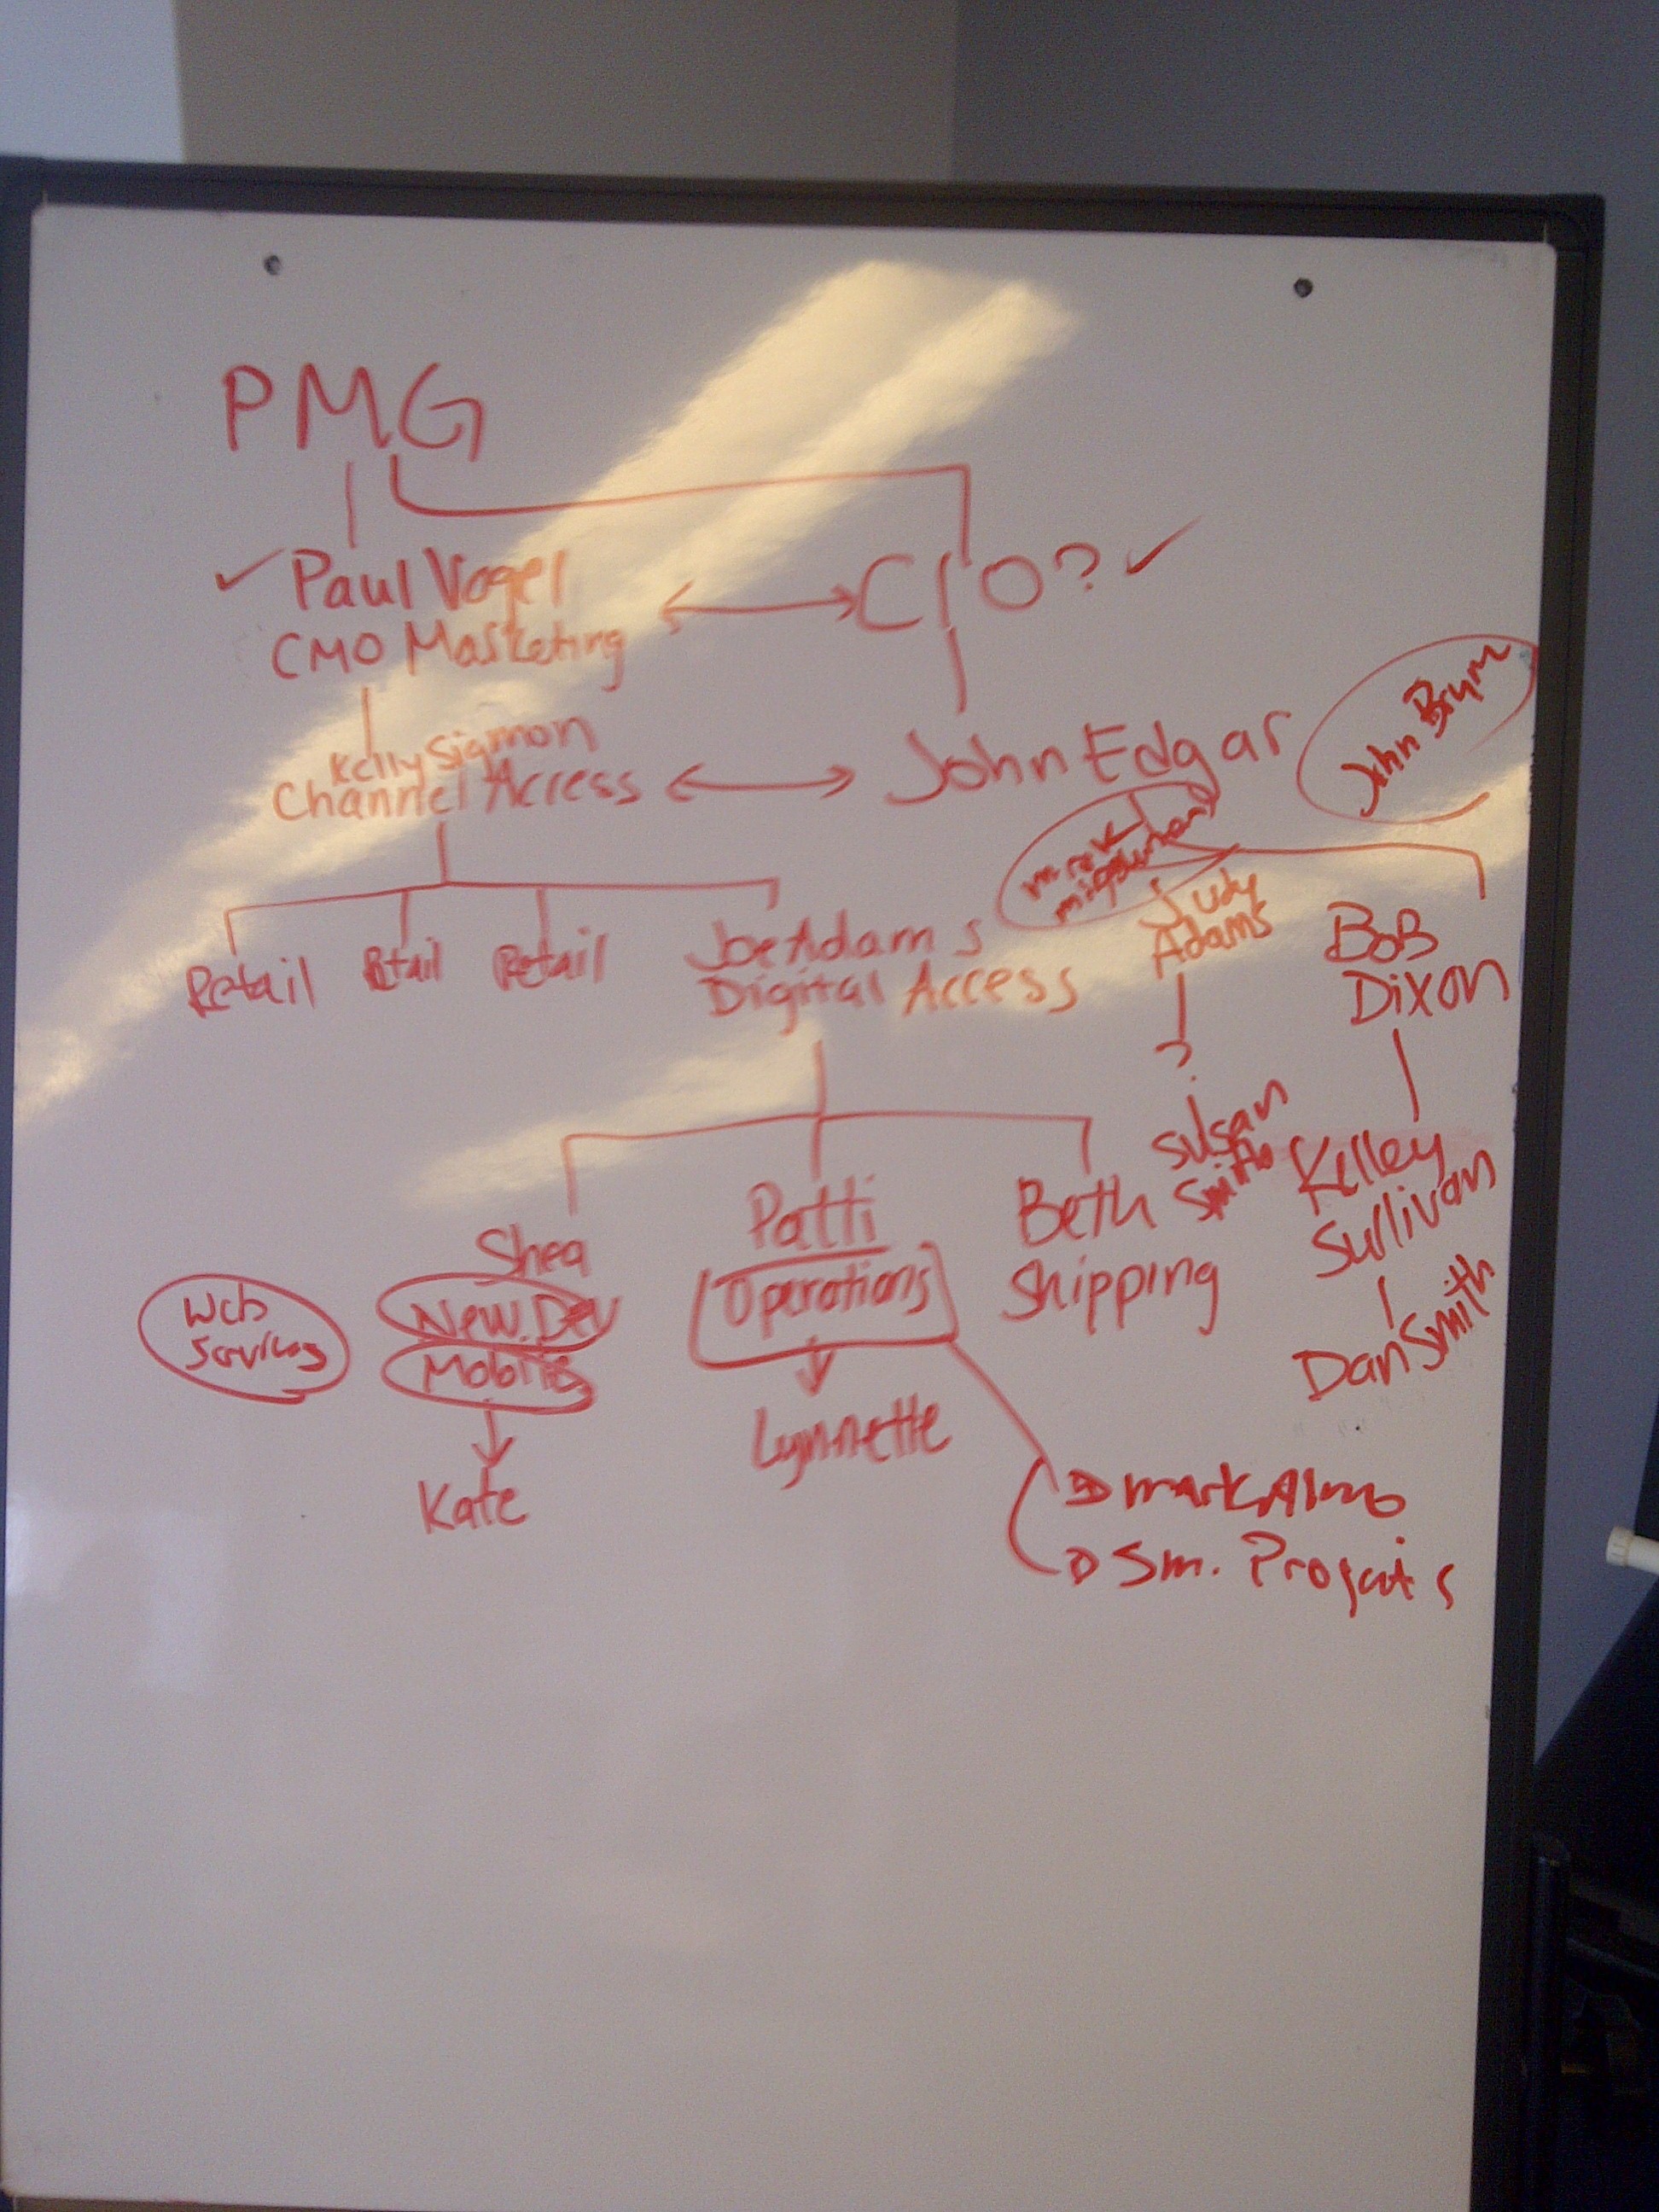 PMG
Paul Vogel
CIO?
CMO Marketing
John Brym
Kelly Sigmon
Channel Access
John Edgar
Judy
Adams
Bob
Dixon
Retail
Rtail
Retail
Joe Adams
Digital Access
?
Susan
Smith
Kelley
Sullivan
Dan Smith
Shea
New.Dev
Mobile
Web
Services
Kate
Patti
Operations
Lynnette
Beth
Shipping
Mark
Sm. Projects